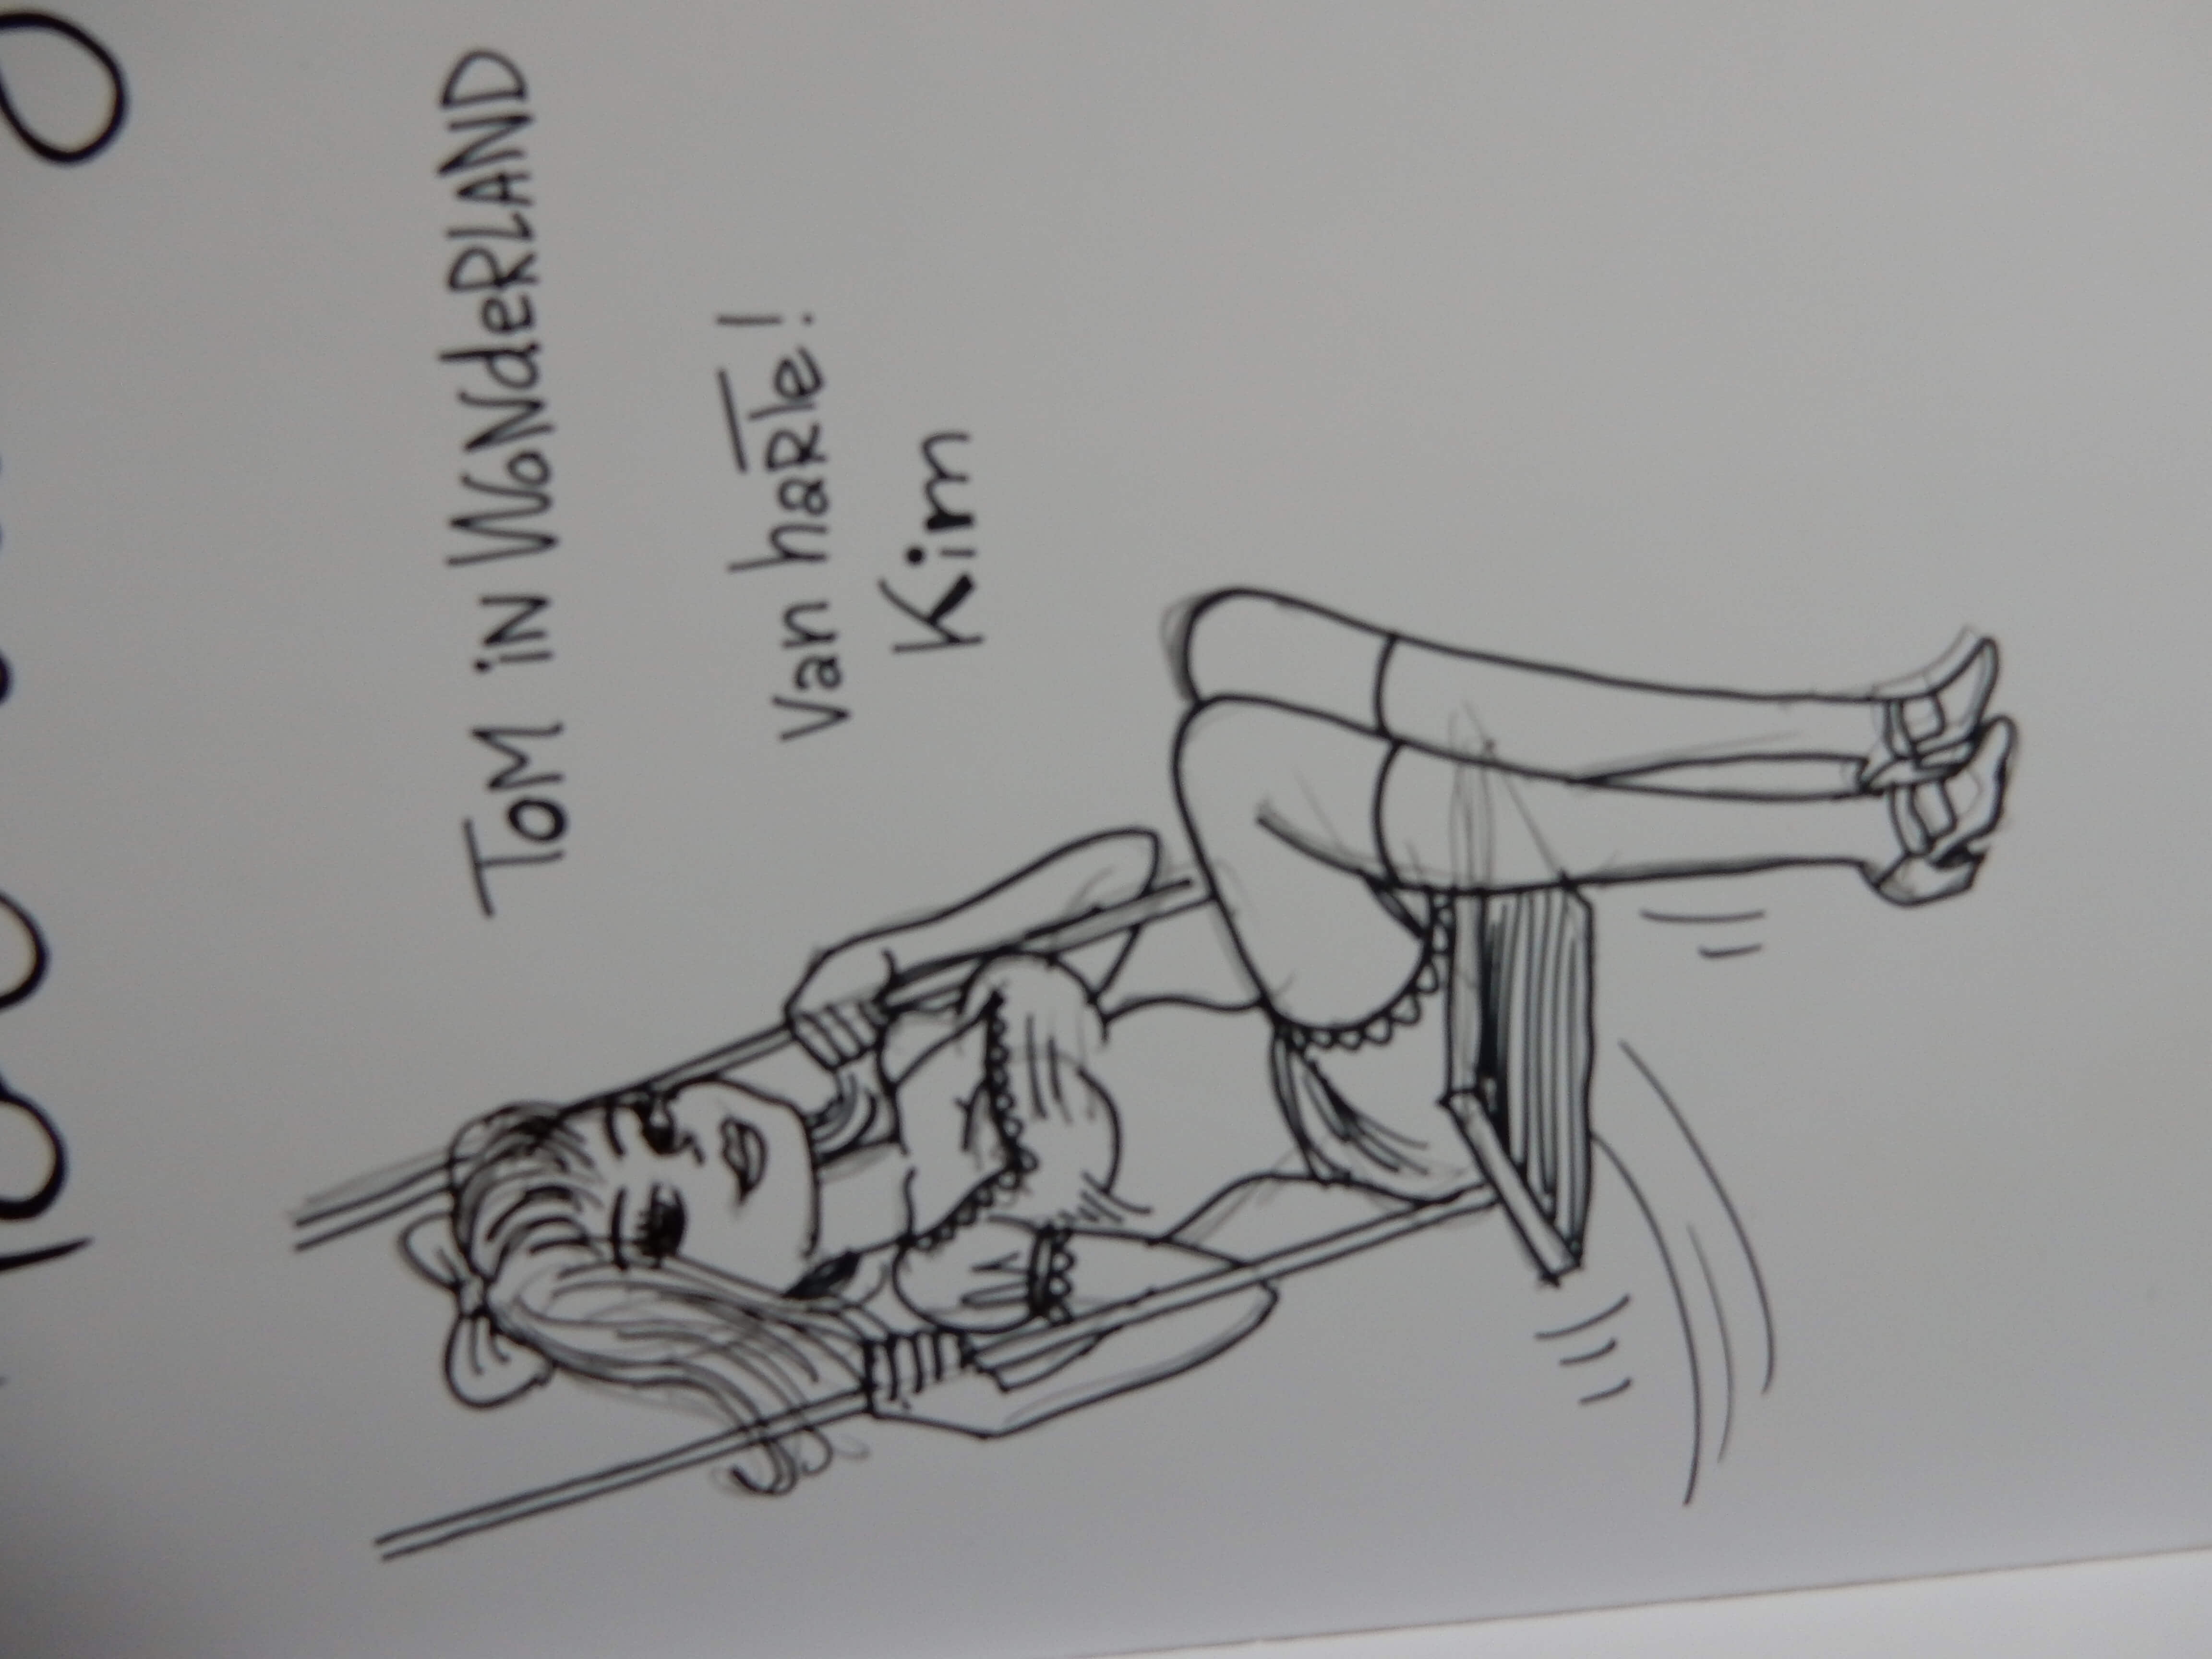 TOM iN WONdeRLAND
van haRTe!
Kim